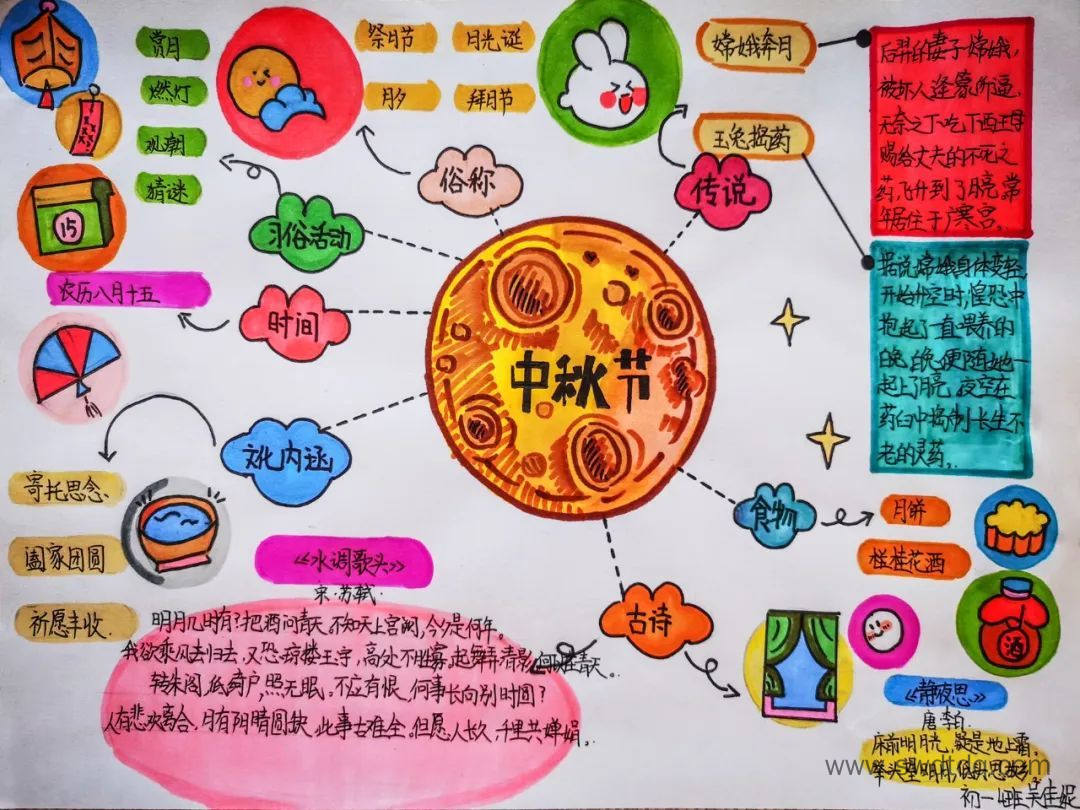 中秋节
俗称
祭月节
月光诞
月夕
拜月节
传说
嫦娥奔月
后羿的妻子嫦娥,
被坏人逢蒙所逼,
无奈之下吃下西王母
赐给丈夫的不死之
药,飞升到了月亮,常
年居住于广寒宫。
玉兔捣药
据说嫦娥身体变轻,
开始升空时,惶恐中
抱起了一直喂养的
白兔,白兔便随她一
起上了月亮,夜空在
药臼中捣制长生不
老的灵药。
习俗活动
赏月
燃灯
观潮
猜谜
15
时间
农历八月十五
文化内涵
寄托思念
阖家团圆
祈愿丰收
食物
月饼
桂桂花酒
酒
古诗
《水调歌头》
宋·苏轼
明月几时有?把酒问青天。不知天上宫阙,今夕是何年。
我欲乘风去归去,又恐琼楼玉宇,高处不胜寒。起舞弄清影,
转朱阁,低绮户,照无眠。不应有恨,何事长向别时圆?
人有悲欢离合,月有阴晴圆缺,此事古难全。但愿人长久,千里共婵娟。
《静夜思》
唐 李白
床前明月光,疑是地上霜。
举头望明月,低头思故乡
初一 班 吴佳妮